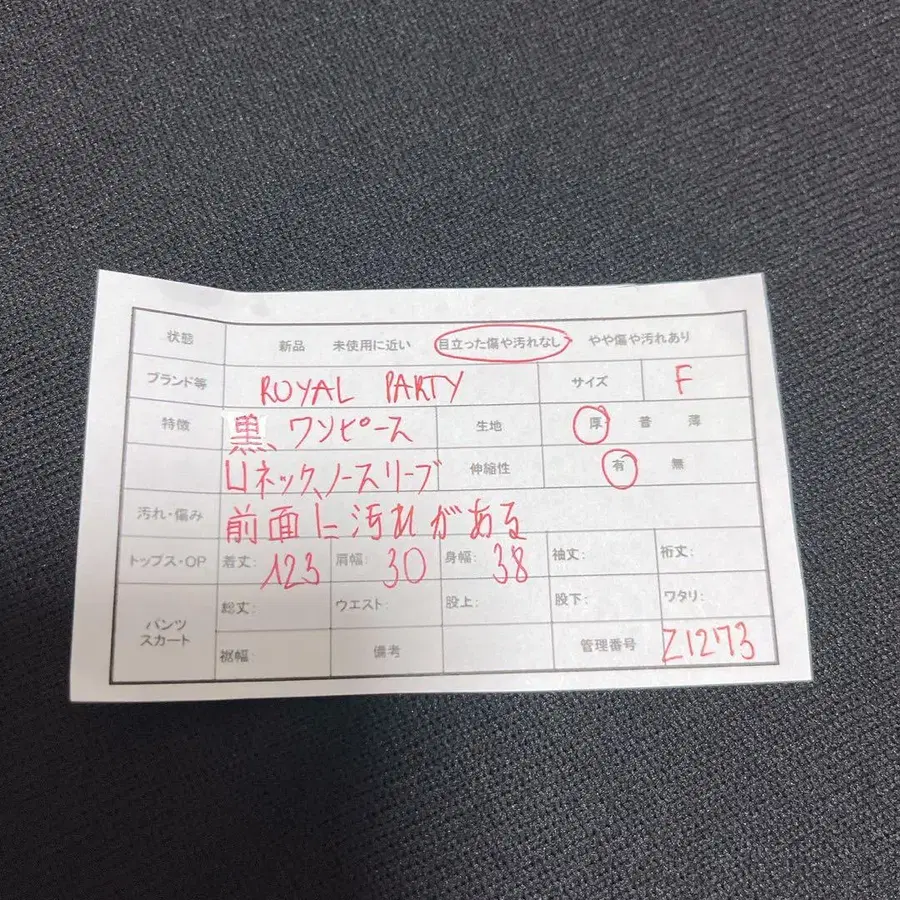 状態 新品 未使用に近い 目立った傷や汚れなし やや傷や汚れあり
ブランド等 ROYAL PARTY サイズ F
特徴 黒、ワンピース 生地 厚 普 薄
Uネック、ノースリーブ 伸縮性 有 無
汚れ・傷み 前面に汚れがある
トップス・OP 着丈: 123 肩幅: 30 身幅: 38 袖丈: 裄丈:
パンツ スカート 総丈: ウエスト: 股上: 股下: ワタリ:
裾幅: 備考 管理番号 Z1273